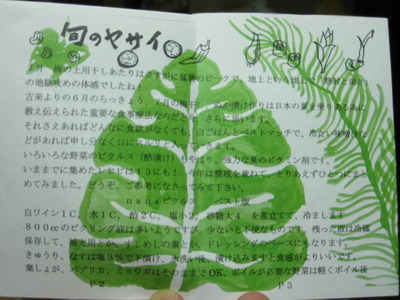 旬のヤサイ
7月、梅の土用干しあたりはさすがに猛暑のピークで、地上という地上
の地獄攻めの体感でしたね
古来よりの6月のらっきょう、7月の梅干し、ぬか漬け作りは日本の夏を乗り
教え伝えられた重要な食事療法なのだと、さらに思います。
それさえあればどんなに食欲がなくても、白ごはんとベストマッチで、冷たい味噌汁な
どがあれば申し分なく口に
いろいろな野菜のピクルス(酢漬け)もやはり、強力な夏のビタミン剤です。
いままでに集めたレシピは13にも! 年を整理を兼ねて、とりあえずひとつにまと
めてみました。どうぞ、ご参考になさってみて下さい。
nanaピクルス ベスト版
白ワイン1C、水1C、酢2C、塩小2、砂糖大4を煮立てて、冷まします
800ccのピクリング液は多いようですが、少ないと不便なもので、残った液は冷蔵
保存して、補充用とか、すしめしの素とか、ドレッシングのベースにもなります。
きゅうり、なすは塩3%で下漬け、水洗い後、漬け込みますと食感がよりいいです。
葉しょが、パプリカ、ミョウガはそのままでOK、ボイルが必要な野菜は軽くボイル後
P2 P3